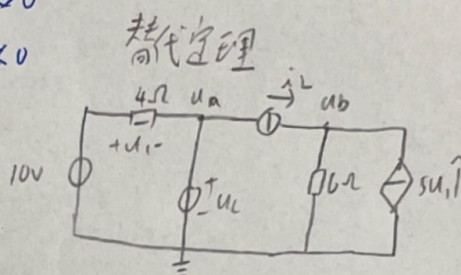 <0
替代定理
4Ω ua iL ub
+u₁-
10V + uc 6Ω 5u₁↑
-